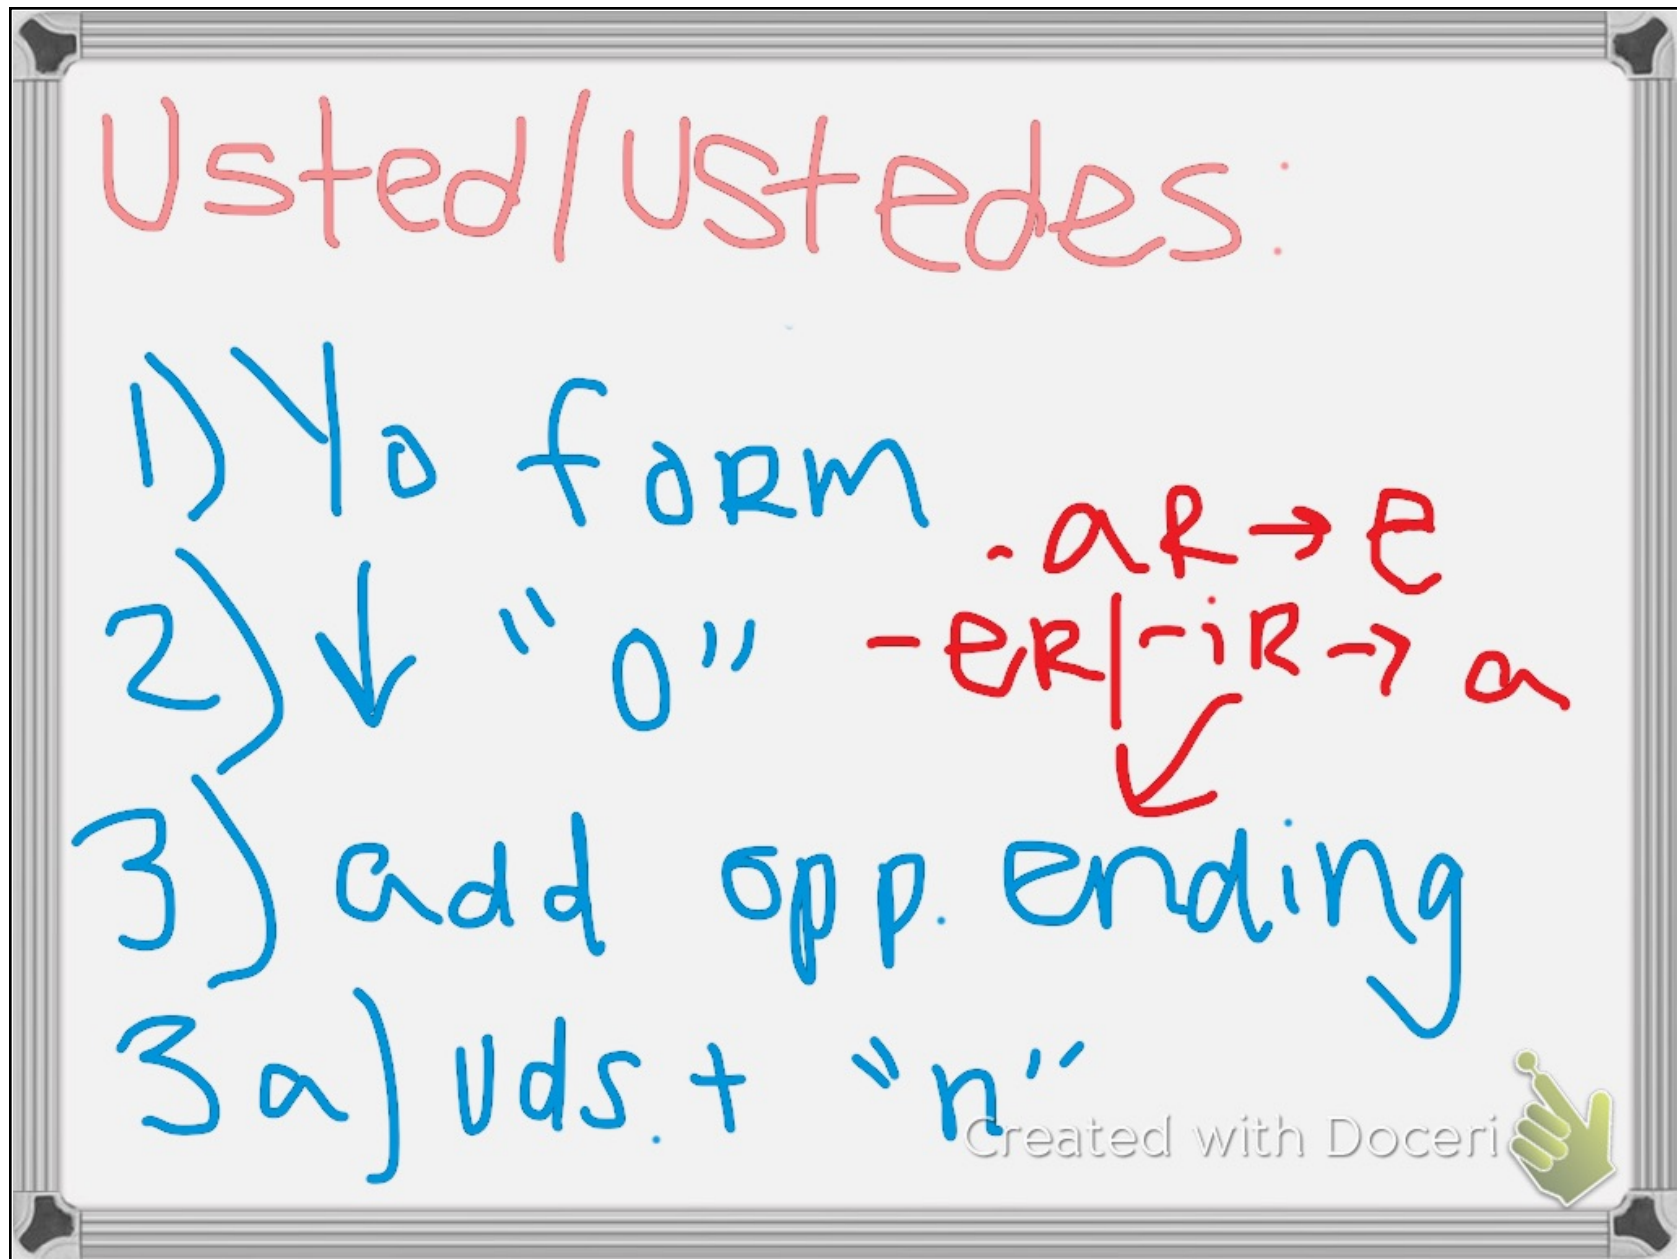 Usted/Ustedes:
1) Yo form
.aR → e
2) ↓ "o"
-eR/-iR → a
3) add opp. ending
3a) Uds. + "n"
Created with Doceri